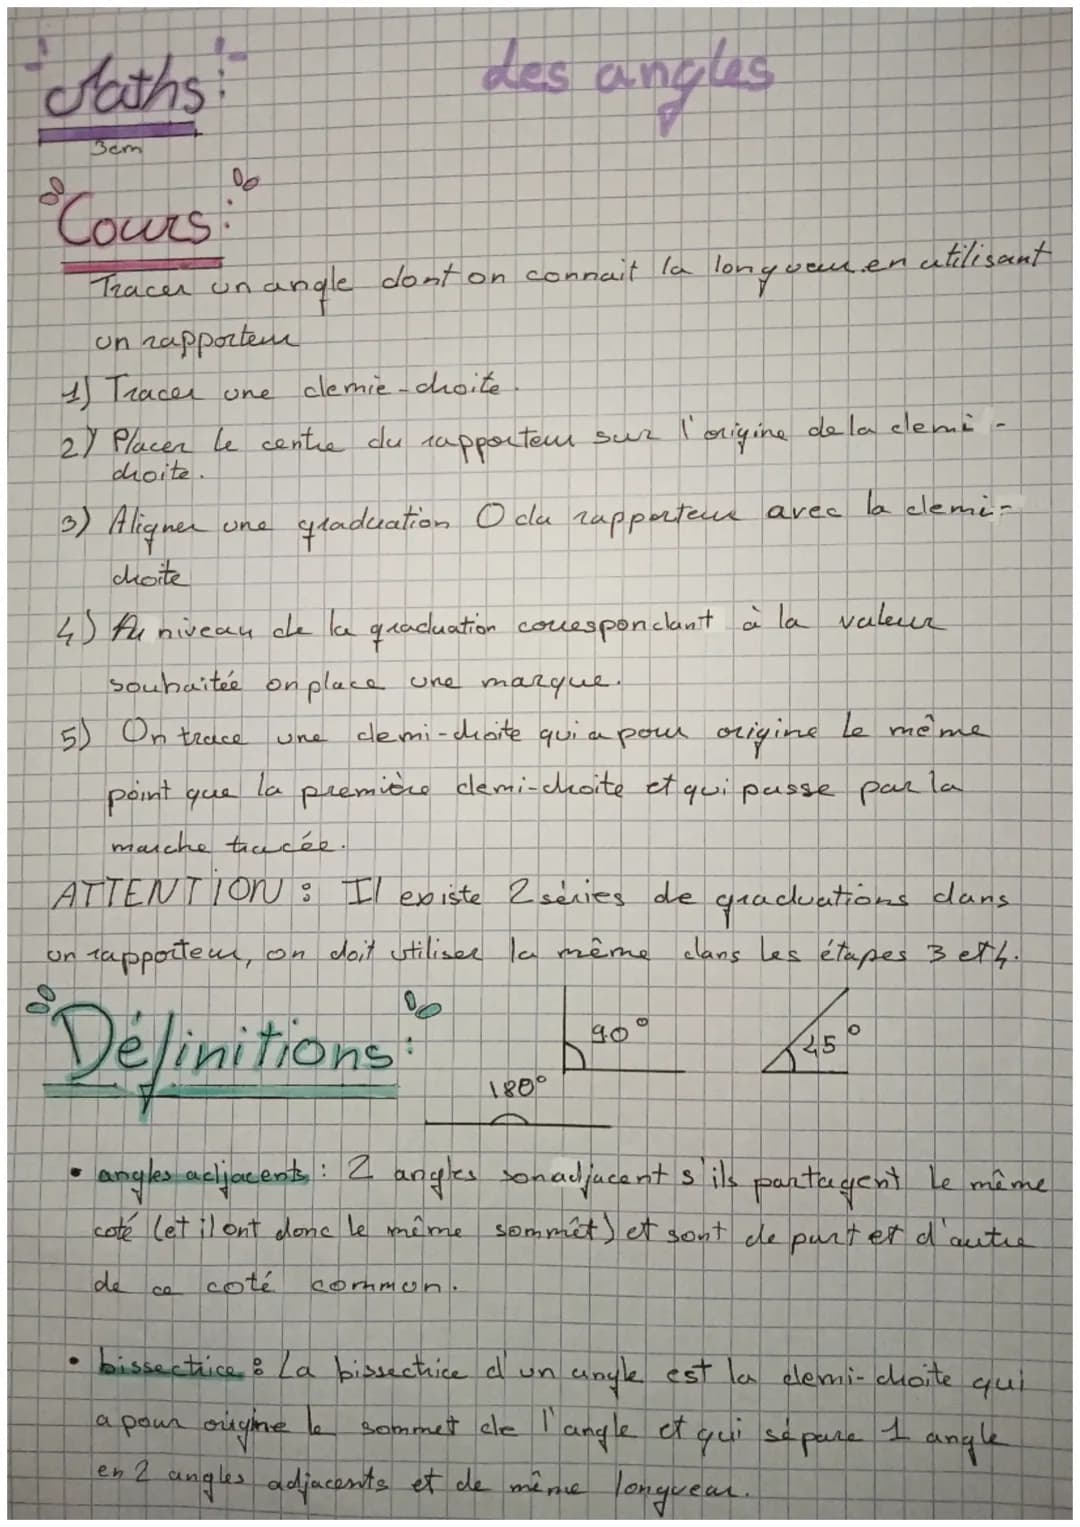 Maths:
des angles
3cm
Cours:
Tracer un angle dont on connait la longueur en utilisant
un rapporteur
1) Tracer une demie-droite.
2) Placer le centre du rapporteur sur l'origine de la demi-
droite.
3) Aligner une graduation O du rapporteur avec la demi-
droite
4) Au niveau de la graduation correspondant à la valeur
souhaitée on place une marque.
5) On trace une demi-droite qui a pour origine le même
point que la première demi-droite et qui passe par la
marche tracée.
ATTENTION : Il existe 2 séries de graduations dans
un rapporteur, on doit utiliser la même dans les étapes 3 et 4.
Définitions:
90°
45°
180°
• angles adjacents : 2 angles son adjacent s'ils partagent le même
coté (et il ont donc le même sommêt) et sont de part et d'autre
de ce coté common.
• bissectrice : La bissectrice d'un angle est la demi-droite qui
a pour origine le sommet de l'angle et qui sépare 1 angle
en 2 angles adjacents et de même longueur.